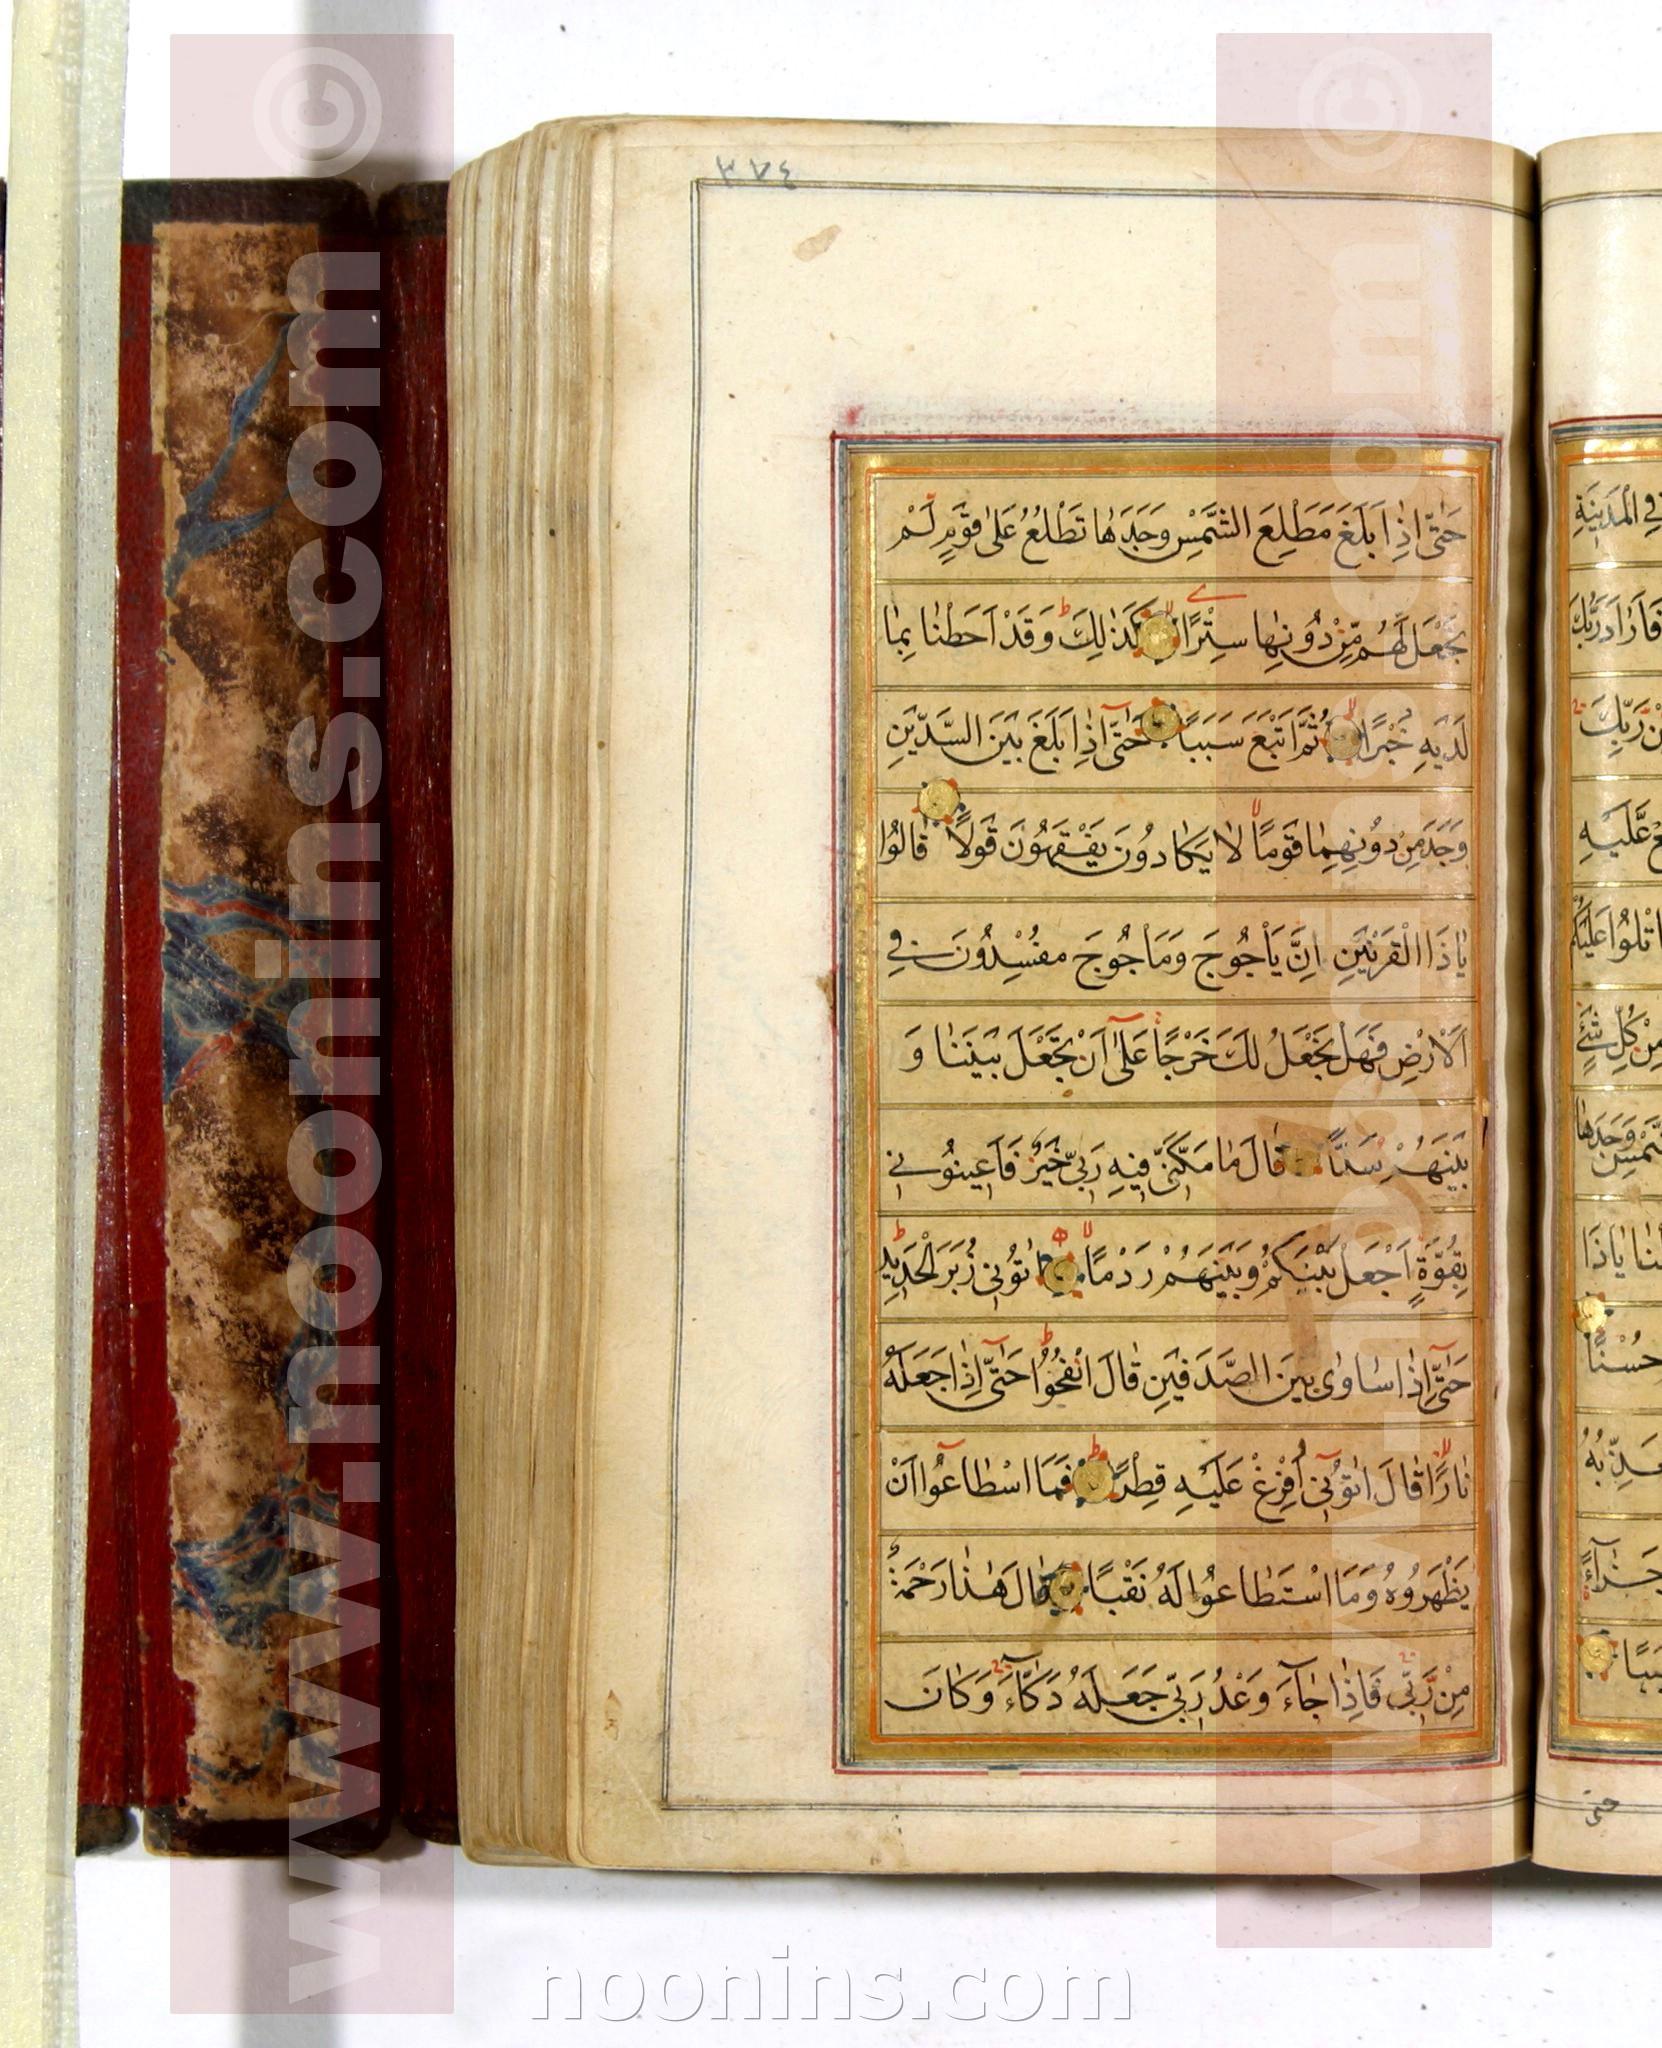 ٣٧٤
حَتّٰى اِذَا بَلَغَ مَطْلِعَ الشَّمْسِ وَجَدَهَا تَطْلُعُ عَلٰى قَوْمٍ لَمْ
نَجْعَلْ لَهُمْ مِنْ دُونِهَا سِتْرًا كَذٰلِكَ وَقَدْ اَحَطْنَا بِمَا
لَدَيْهِ خُبْرًا ثُمَّ اَتْبَعَ سَبَبًا حَتّٰى اِذَا بَلَغَ بَيْنَ السَّدَّيْنِ
وَجَدَ مِنْ دُونِهِمَا قَوْمًا لَا يَكَادُونَ يَفْقَهُونَ قَوْلًا قَالُوا
يَا ذَا الْقَرْنَيْنِ اِنَّ يَأْجُوجَ وَمَأْجُوجَ مُفْسِدُونَ فِي
الْاَرْضِ فَهَلْ نَجْعَلُ لَكَ خَرْجًا عَلٰى اَنْ تَجْعَلَ بَيْنَنَا وَ
بَيْنَهُمْ سَدًّا قَالَ مَا مَكَّنِّي فِيهِ رَبِّي خَيْرٌ فَاَعِينُونِي
بِقُوَّةٍ اَجْعَلْ بَيْنَكُمْ وَبَيْنَهُمْ رَدْمًا اٰتُونِي زُبَرَ الْحَدِيدِ
حَتّٰى اِذَا سَاوٰى بَيْنَ الصَّدَفَيْنِ قَالَ انْفُخُوا حَتّٰى اِذَا جَعَلَهُ
نَارًا قَالَ اٰتُونِي اُفْرِغْ عَلَيْهِ قِطْرًا فَمَا اسْطَاعُوا اَنْ
يَظْهَرُوهُ وَمَا اسْتَطَاعُوا لَهُ نَقْبًا قَالَ هٰذَا رَحْمَةٌ
مِنْ رَبِّي فَاِذَا جَآءَ وَعْدُ رَبِّي جَعَلَهُ دَكَّآءَ وَكَانَ
فِي الْمَدِينَةِ
فَاَرَادَ رَبُّكَ
مِنْ رَبِّكَ
عَلَيْهِ
اَتْلُوا عَلَيْكُمْ
مِنْ كُلِّ شَيْءٍ
وَجَدَهَا
يَا ذَا
حُسْنًا
جَزَآءً
حتى
www.noonins.com ©
www.noonins.com ©
noonins.com